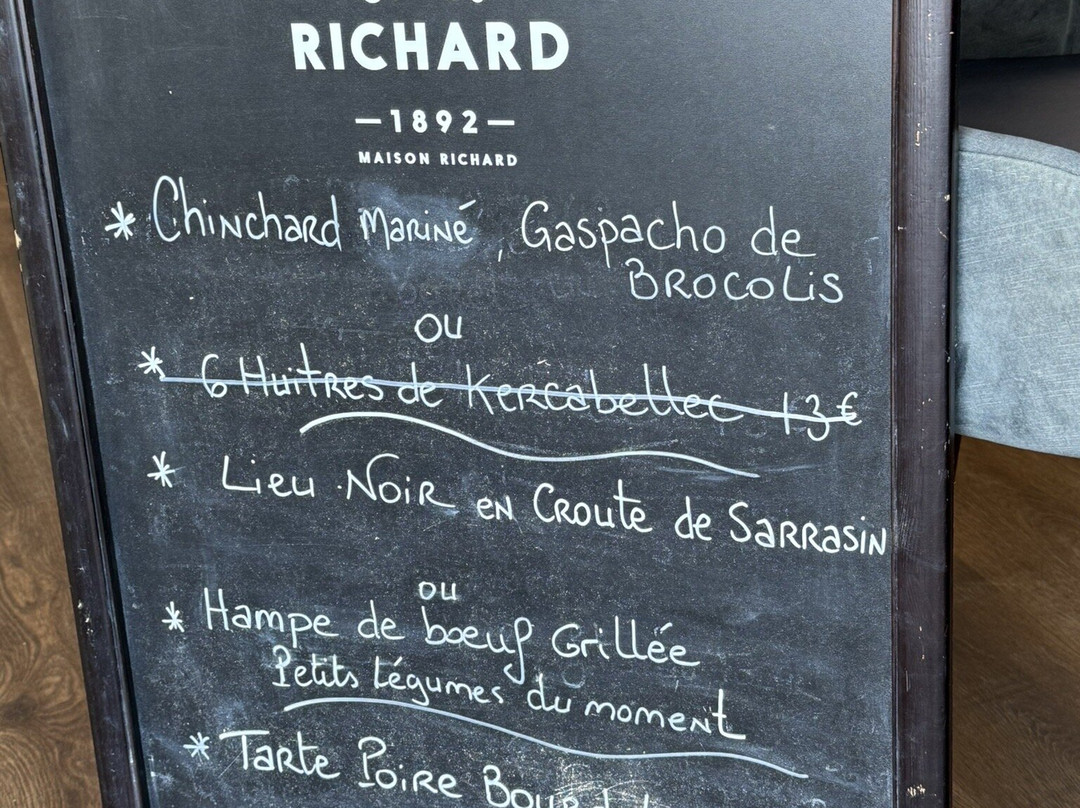 RICHARD
—1892—
MAISON RICHARD
* Chinchard Mariné, Gaspacho de
Brocolis
ou
* 6 Huitres de Kercabellec 13€
* Lieu Noir en Croute de Sarrasin
ou
* Hampe de boeuf Grillée
Petits légumes du moment
* Tarte Poire